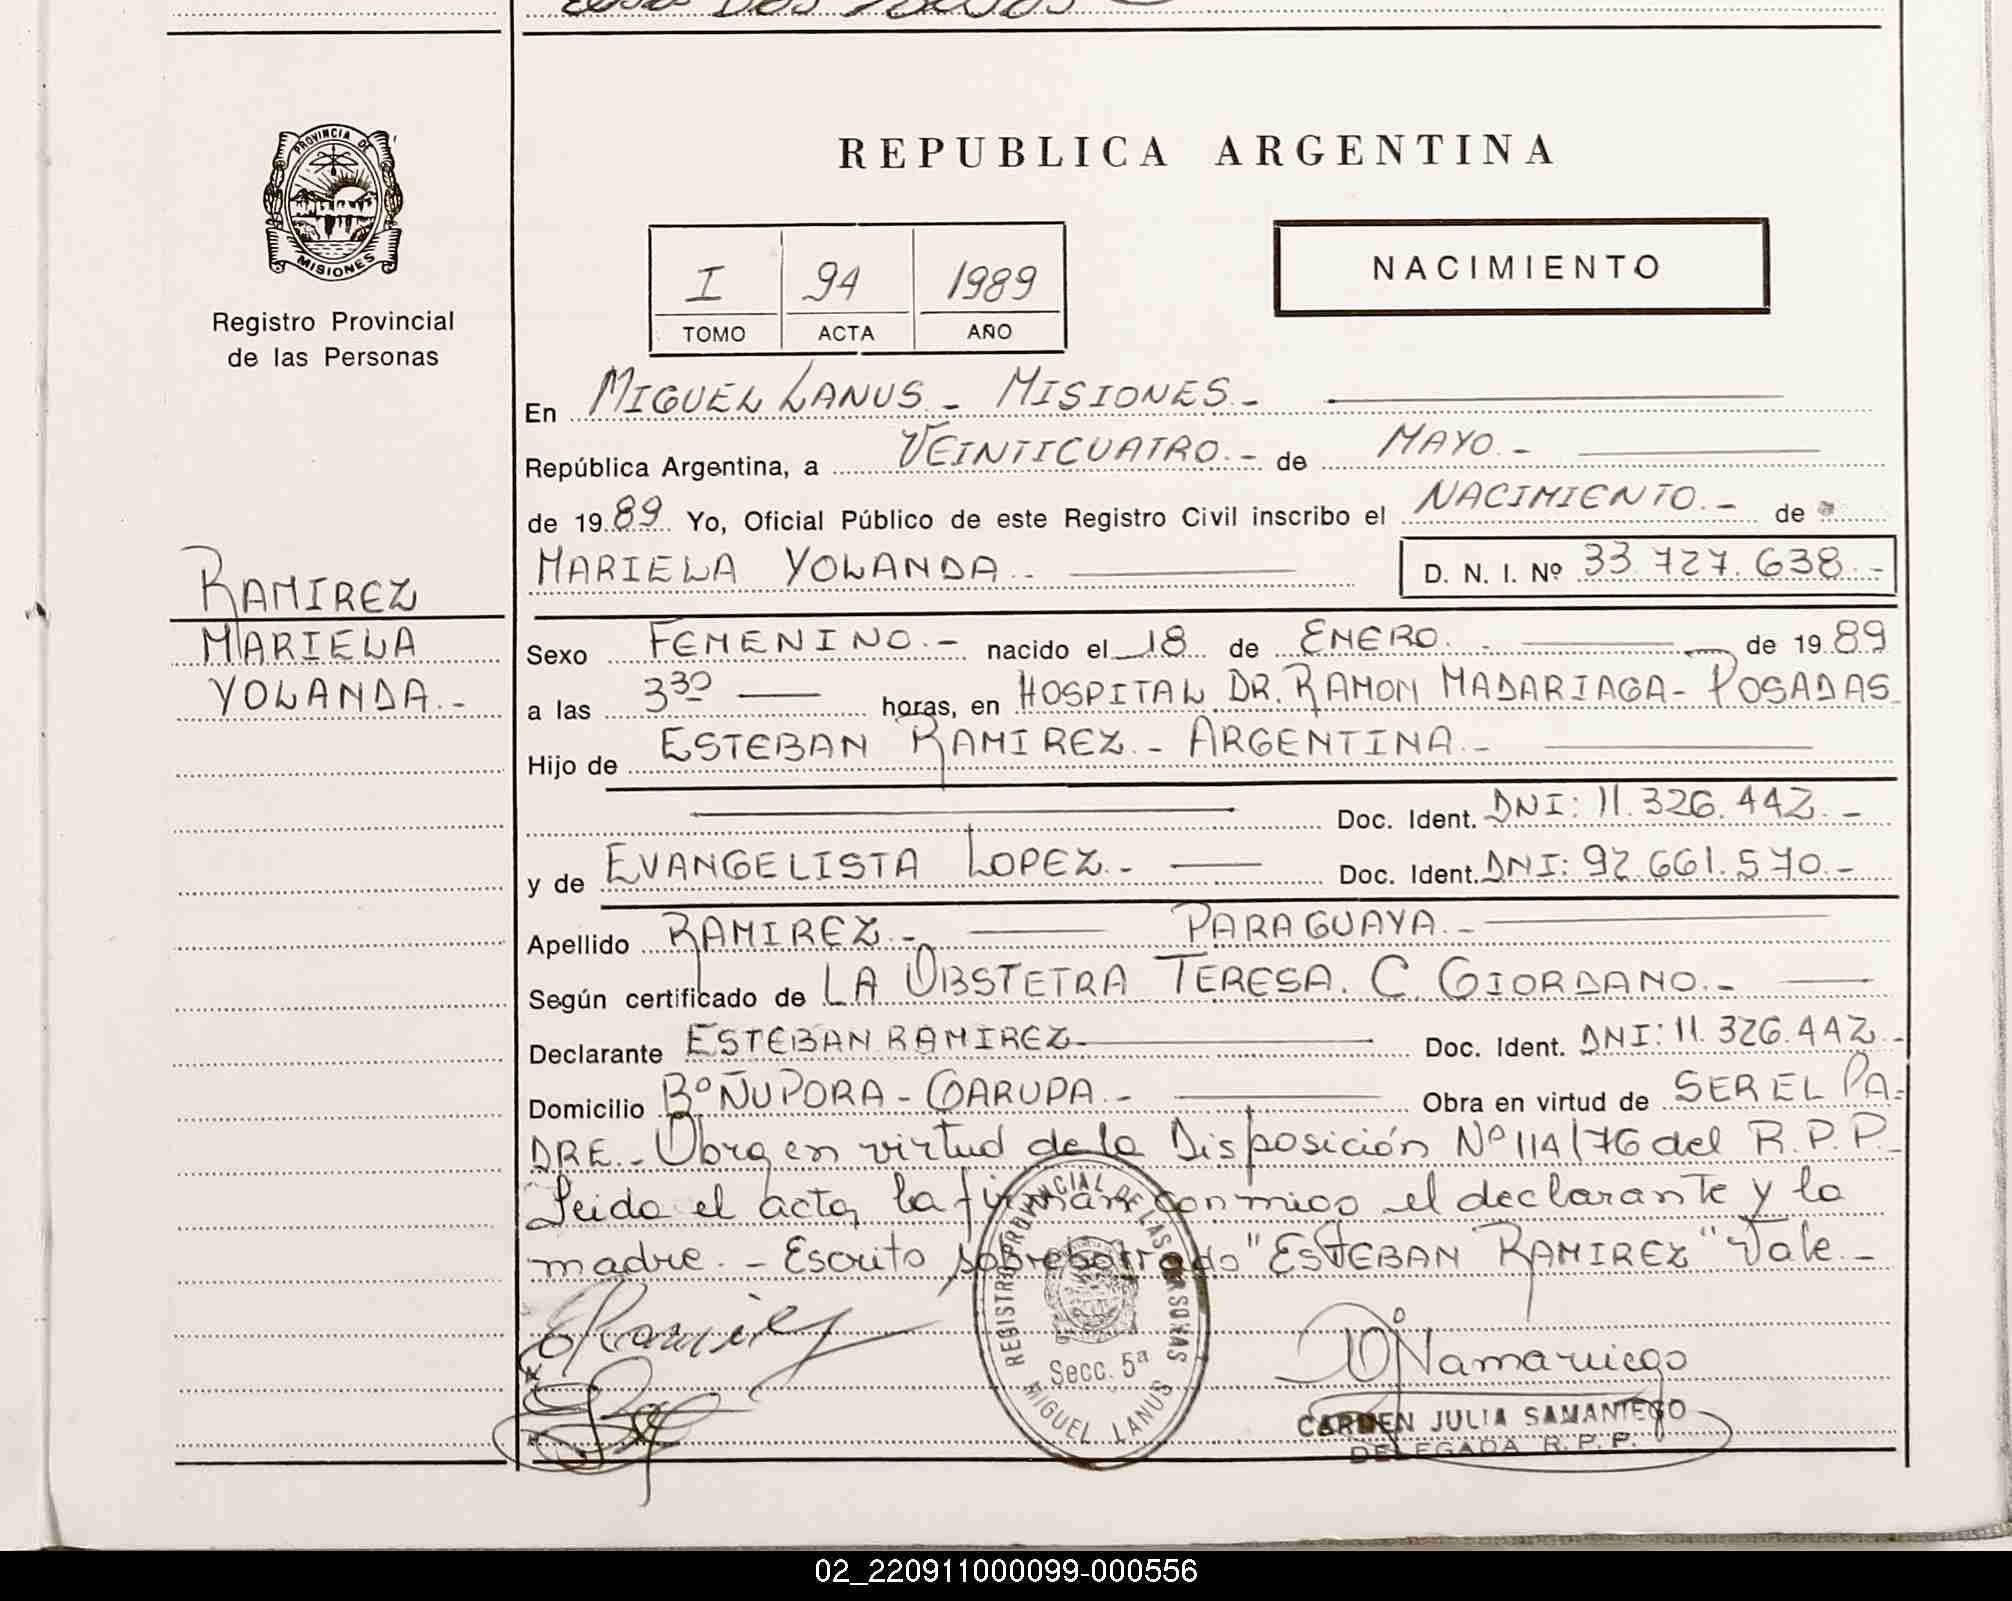 PROVINCIA DE
MISIONES
Registro Provincial
de las Personas
RAMIREZ
MARIELA
YOLANDA.-
REPUBLICA ARGENTINA
I 94 1989
TOMO ACTA AÑO
NACIMIENTO
En MIGUEL LANUS - MISIONES.-
República Argentina, a VEINTICUATRO.- de MAYO.-
de 1989 Yo, Oficial Público de este Registro Civil inscribo el NACIMIENTO.- de
MARIELA YOLANDA.- D. N. I. Nº 33.727.638.-
Sexo FEMENINO.- nacido el 18 de ENERO. de 1989
a las 3³⁰ horas, en HOSPITAL DR. RAMON MADARIAGA - POSADAS
Hijo de ESTEBAN RAMIREZ.- ARGENTINA.-
Doc. Ident. DNI: 11.326.442.-
y de EVANGELISTA LOPEZ.- Doc. Ident. DNI: 92.661.570.-
Apellido RAMIREZ.- PARAGUAYA.-
Según certificado de LA OBSTETRA TERESA. C. GIORDANO.-
Declarante ESTEBAN RAMIREZ Doc. Ident. DNI: 11.326.442.-
Domicilio Bº ÑUPORA - GARUPA.- Obra en virtud de SER EL PA-
DRE.- Obra en virtud de la Disposición Nº 114/76 del R.P.P.
Leida el acta, la firman conmigo el declarante y la
madre.- Escrito sobreborrado "ESTEBAN RAMIREZ" Vale.-
REGISTRO PROVINCIAL DE LAS PERSONAS
Secc. 5ª
MIGUEL LANUS
CARMEN JULIA SAMANIEGO
DELEGADA R. P. P.
02_220911000099-000556